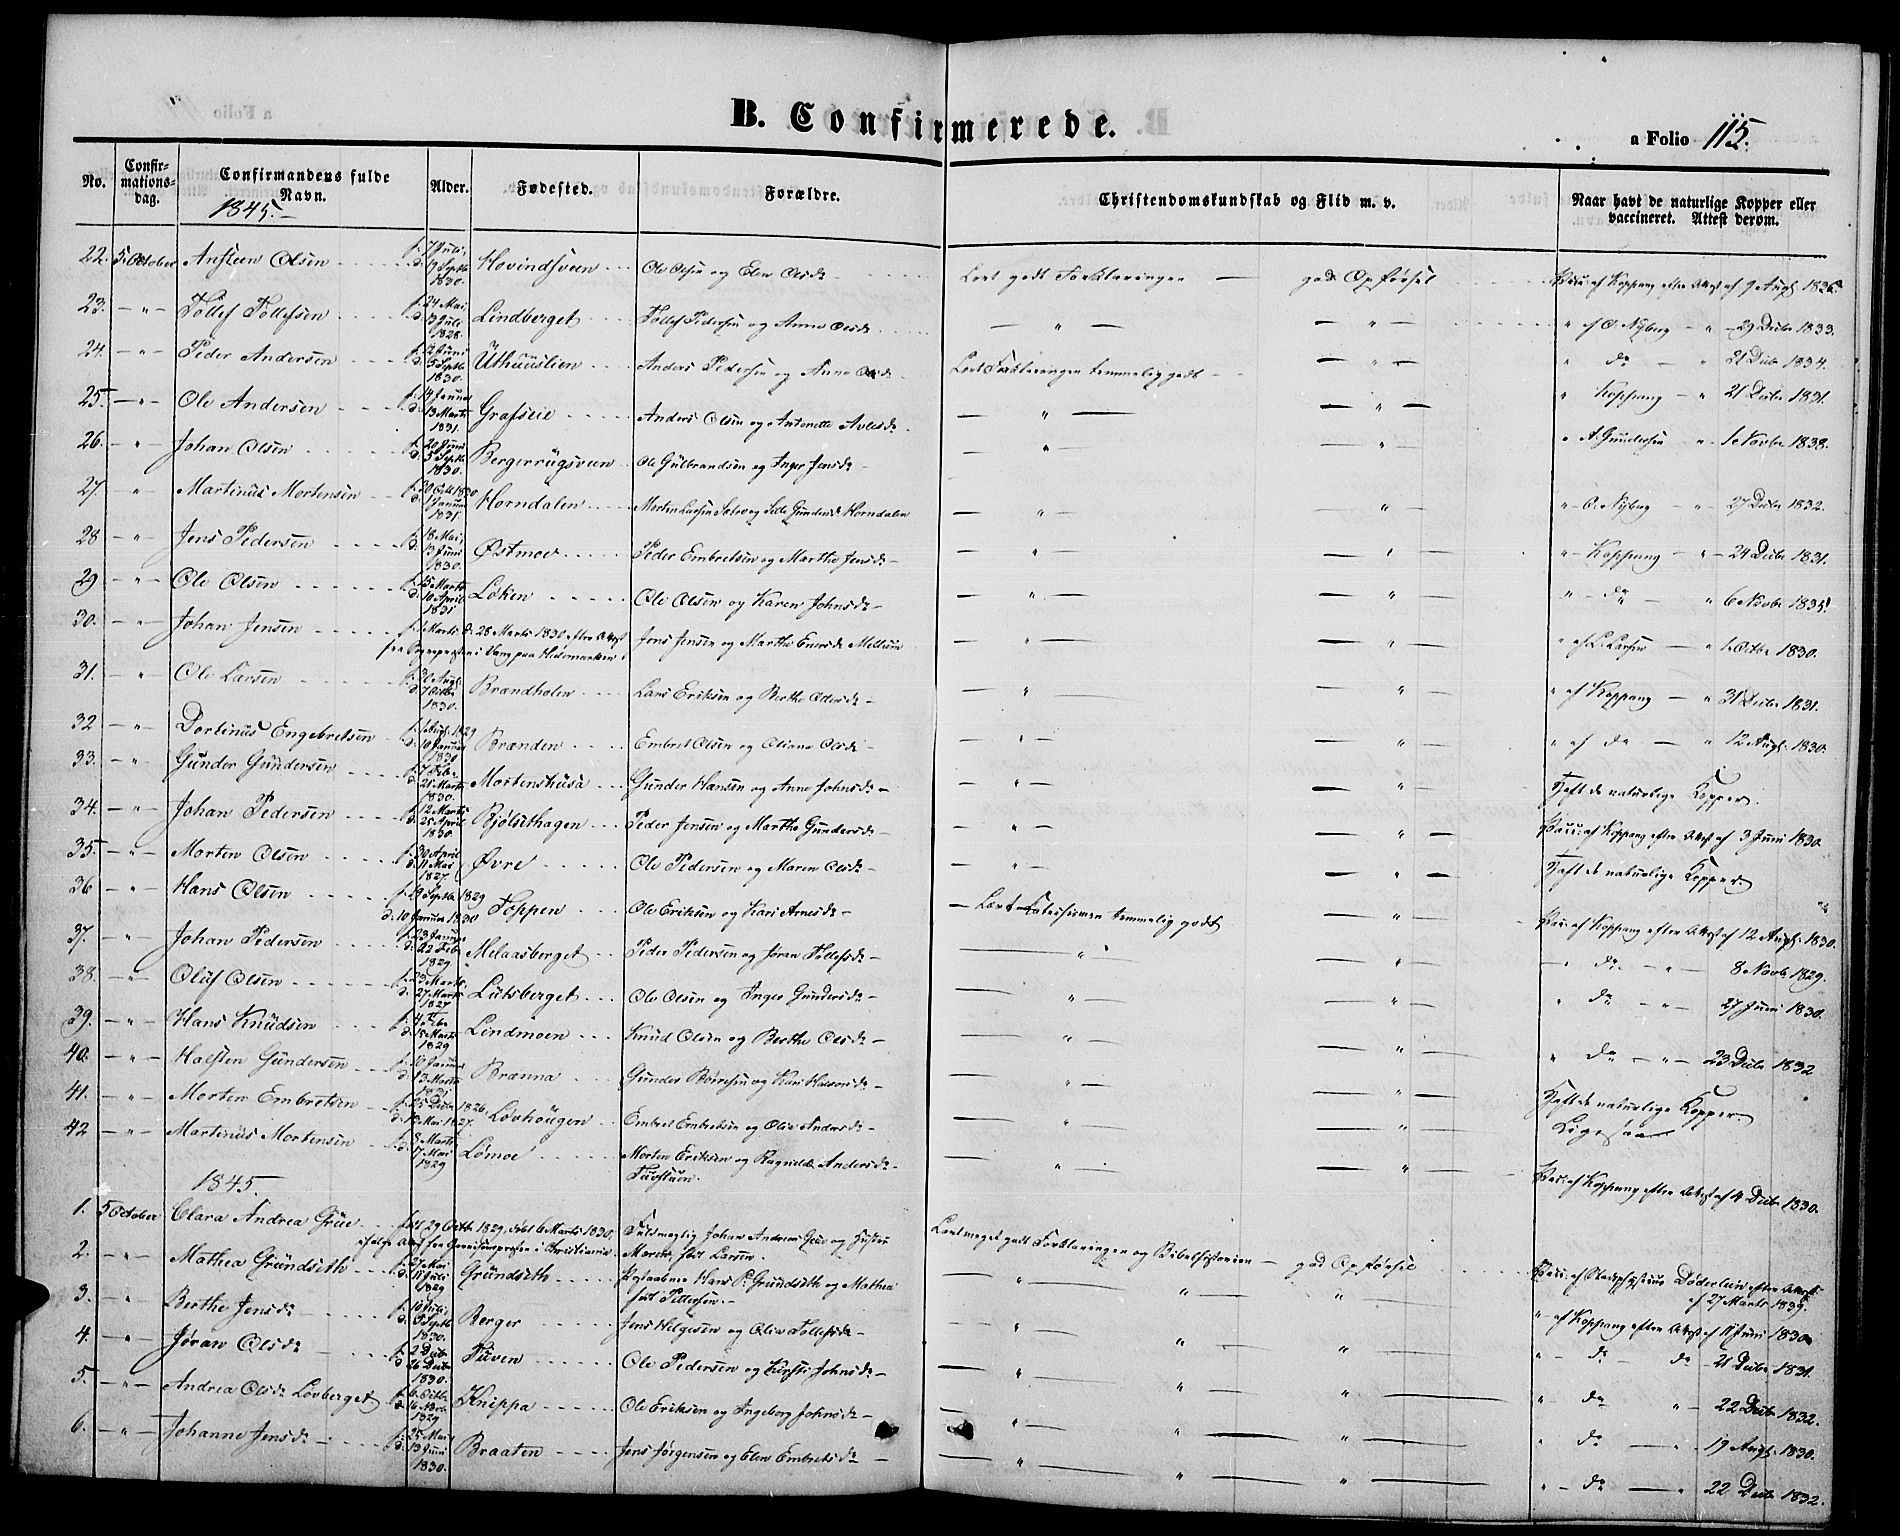 B. Confirmerede.
a Folio 115.
No. Confirmationsdag. Confirmandens fulde Navn. Alder. Fødested. Forældre. Christendomskundskab og Flid m. v. Naar havt de naturlige Kopper eller vaccineret. Attest derom.
1845.
22. 5. October Ansteen Olsen f. 7 Juli, d. 9 Septb. 1830. Hovindsveen Ole Olsen og Elen Olsdr Lært godt Forklaringen god Opførsel Vacc: af Koppang efter Attest af 9 Augt
23. " Tollef Tollefsen f. 24 Mai, d. 13 Juli 1828. Lindberget Tollef Pedersen og Anne Olsdr " " " af O. Nyberg " 29 Decbr 1833.
24. " Peder Andersen f. 2 Juni d. 5 Septb. 1830. Uthuuslien Anders Pedersen og Anne Lært Forklaringen temmelig godt " " do " 21 Decbr 1834.
25. " Ole Andersen f. 14 Januar d. 13 Marts 1831. Grafseie Anders Olsen og Antonette " " " Koppang " 21 Decbr 1831.
26. " Johan Olsen f. 20 Juni d. 5 Septb. 1830. Bergerrugsveen Ole Gulbrandsen og Inger Jensdr " " " A. Gundersen " 1 Novbr 1838.
27. " Martinus Mortensen f. 30 1830 d. 1 Januar 1831 Horndalen Morten Larsen og Gundersdr Horndalen " " " O. Nyberg " 27 Decbr 1832.
28 " Jens Pedersen f. 18 Mai, d. 13 Juni 1830. Østmoe Peder Embretsen og Marthe Jensdr " " " Koppang " 24 Decbr 1831.
29 " Ole Olsen f. 15 Marts d. 10 April 1831 Løken Ole Olsen og Karen Johnsdr " " " do " 6 Novbr 1835.
30. " Johan Jensen f. 1 Marts d. 28 Marts 1830 efter Attest fra Sognepræsten i Vang paa Hedemarken Jens Jensen og Marthe Enersdr Mellum " " " af L. Larsen " 1 Octbr 1830.
31. " Ole Larsen f. 30 Augt. d. 7 Octbr 1830. Brændholen Lars Eriksen og Berthe Olsdr " " " af Koppang " 31 Decbr 1831.
32 " Dortinus Engebretsen f. 1 Augt. 1829 d. 10 Januar 1830 Brænden Embret Olsen og Oliane Olsdr " " " af do " 12 Augt. 1830.
33. " Gunder Gundersen f. 7 Febr. d. 21 Marts 1830. Mortenshusa Gunder Hansen og Anne Johnsdr " " Haft de naturlige Kopper.
34. " Johan Pedersen f. 12 Marts d. 25 April 1830. Bjølsethagen Peder Jensen og Marthe Gundersdr " " Vacc: af Koppang efter Attest af 3 Juni 1830
35. " Morten Olsen f. 30 April d. 11 Mai 1827. Øvre Ole Pedersen og Maren Olsdr " " Haft de naturlige Kopper.
36 " Hans Olsen f. 19 Septb. 1829 d. 10 Januar 1830 Toppen Ole Eriksen og Kari Arnesdr Lært Catechismen temmelig godt " Vacc: af Koppang efter Attest af 12 Augt. 1830.
37. " Johan Pedersen f. 23 Januar d. 22 Febr. 1829 Melaasberget Peder Pedersen og Jøran Tollefsdr " " do " 8 Novb. 1829.
38. " Oluf Olsen f. 23 Marts d. 27 Marts 1827 Lutsberget Ole Olsen og Inger Gundersdr " " " do " 27 Juni 1830.
39. " Hans Knudsen f. 4 Febr. d. 15 Marts 1829 Lindmoen Knud Olsen og Berthe Olsdr " " " do " 23 Decbr 1832
40. " Halsten Gundersen f. 10 Januar d. 13 Marts 1831 Brænna Gunder Børresen og Kari Halvorsdr " " Haft de naturlige Kopper
41. " Morten Embretsen f. 25 Decbr 1826, d. 13 Mai 1827. Løvhougen Embret Embretsen og Olia Andersdr " " Ligesaa
42 " Martinus Mortensen f. 8 Marts d. 17 Mai 1829 Lømoe Morten Eriksen og Ragnild Andersdr " " Vacc: af Koppang efter Attest af 4 Decbr 1830.
1845.
1. 5 October Clara Andrea Grüe født 29 Octb. 1829, døbt 6 Marts 1830, ifølge Attest fra Garnisonspræsten i Christiania. Fuldmægtig Johan Andreas Grüe og Maren født Larsen. Lært meget godt Forklaringen og Bibelhistorien god Opførsel Vacc: af Stadsphysicus Døderlein efter Attest af 27 Marts 1839.
2. " Mathea Grundseth f. 27 Mai d. 11 Juli 1829 Grundseth Postaabner Hans P. Grundseth og Mathea født Pettersen. " " " " af Koppang efter Attest af Juni 1830
3. " Berthe Jensdr f. 10 Juli, d. 5 Septb. 1830. Berger Jens Helgesen og Olia Tollefsdr " " " " do do 21 Decbr 1831.
4. " Jøran Olsdr f. 2 Decbr d. 26 Decbr 1830. Tuven Ole Pedersen og Kersti Johnsdr " " " " do " 22 Decbr 1832.
5. " Andrea Olsdr Løvberget f. 6 Octb. d. 16 Novb. 1829 Knippa Ole Eriksen og Ingeborg Johnsdr " " " " do " 19 Augt. 1830.
6. " Johanne Jensdr f. 25 Mai d. 13 Juni 1830. Braaten Jens Jørgensen og Elen Embretsdr " " " " do " 22 Decbr 1832.